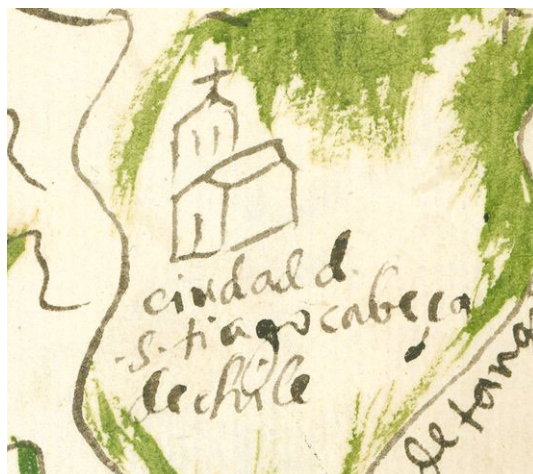 ciudad d.
.S. tiago cabeça
de chile
de tanga